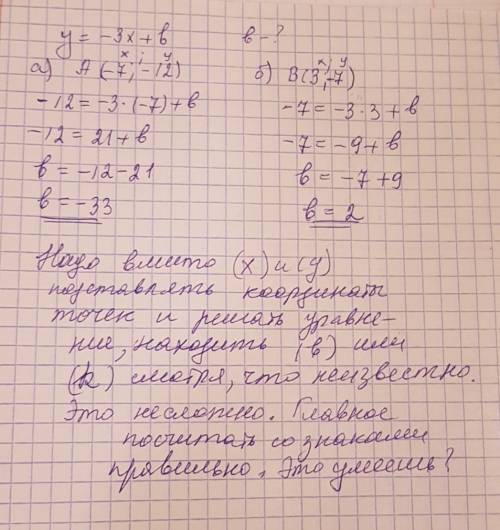 y = -3x + b b - ?
x y x y
a) A (-7; -12) б) B(3; -7)
-12 = -3·(-7)+b -7 = -3·3 + b
-12 = 21 + b -7 = -9 + b
b = -12 - 21 b = -7 + 9
b = -33 b = 2
Надо вместо (x) и (y)
подставлять координаты
точек и решать уравне-
ние, находить (b) или
(k) смотря, что неизвестно.
Это несложно. Главное
посчитать со знаками
правильно. Это умеешь?